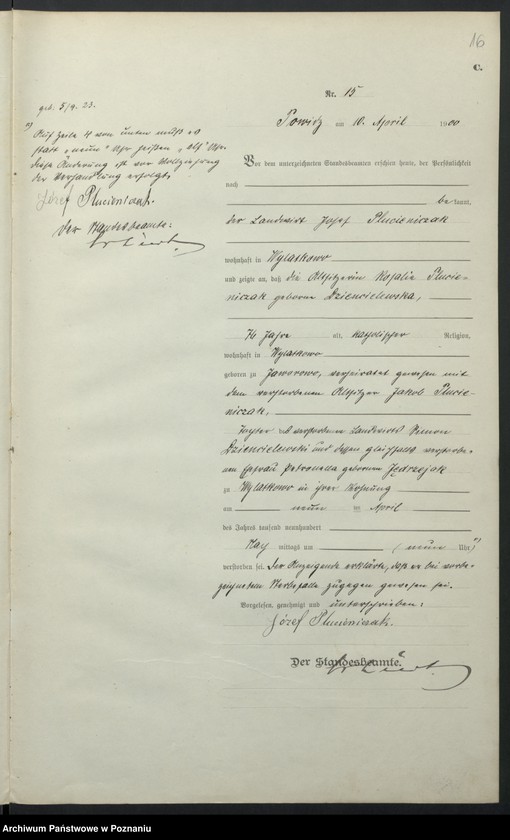 16
C.
Nr. 15
Powidz am 10. April 1900
geb. 5/9. 23.
*) Auf Zeile 4 von unten muß es
statt „neun“ Uhr heißen „elf“ Uhr.
diese Änderung ist vor Vollziehung
der Verhandlung erfolgt.
Józef Plucieniczak.
Der Standesbeamte:
Vor dem unterzeichneten Standesbeamten erschien heute, der Persönlichkeit
nach
be kannt,
der Landwirt Josef Plucieniczak
wohnhaft in Wylatkowo
und zeigte an, daß die Altsitzerin Rosalie Plucie-
niczak geborne Dziencielewska,
76 Jahre alt, katholischer Religion,
wohnhaft in Wylatkowo
geboren zu Jaworowo, verheiratet gewesen mit
dem verstorbenen Altsitzer Jakob Plucie-
niczak,
Tochter des verstorbenen Landwirts
Dziencielewski und dessen gleichfalls verstorbe-
nen Ehefrau Petronella geborenen Jędrzejak
zu Wylatkowo in ihrer Wohnung
am neun ten April
des Jahres tausend neunhundert
Nach mittags um (neun Uhr *)
verstorben sei. Der Anzeigende erklärte, daß er bei vorbe-
zeichnetem Sterbefalle zugegen gewesen sei.
Vorgelesen, genehmigt und unterschrieben:
Józef Plucieniczak.
Der Standesbeamte.
Archiwum Państwowe w Poznaniu